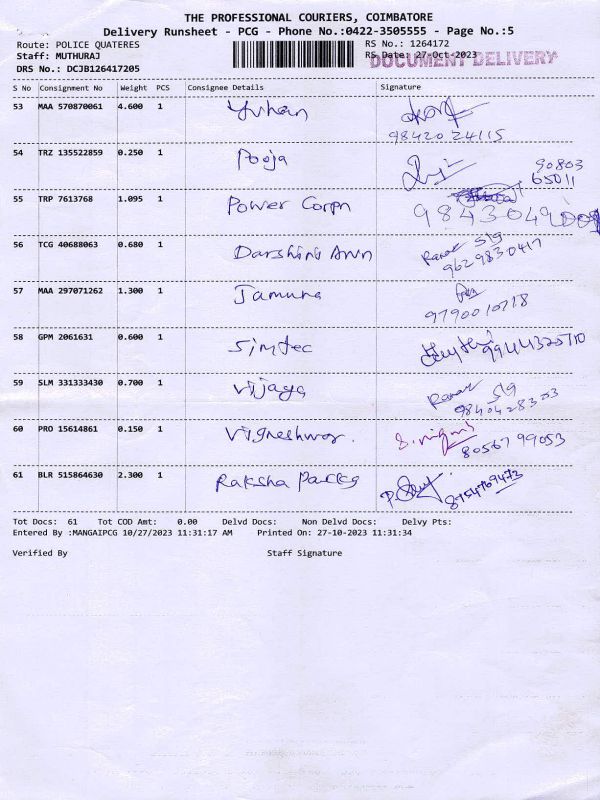 THE PROFESSIONAL COURIERS, COIMBATORE
Delivery Runsheet - PCG - Phone No.:0422-3505555 - Page No.:5
Route: POLICE QUATERES
RS No.: 1264172
Staff: MUTHURAJ
RS Date: 27-Oct-2023
DOCUMENT DELIVERY
DRS No.: DCJB126417205
S No Consignment No Weight PCS Consignee Details Signature
53 MAA 570870061 4.600 1 Yuhan
98420 24115
54 TRZ 135522859 0.250 1 Pooja 90803
65011
55 TRP 7613768 1.095 1 Power Corpn
56 TCG 40688063 0.680 1 Darshini Arun
9629830417
57 MAA 297071262 1.300 1 Jamuna
9790010718
58 GPM 2061631 0.600 1 Simtec 9944325710
59 SLM 331333430 0.700 1 Vijaya
9840428303
60 PRO 15614861 0.150 1 Vigneshwar. 80567 99053
61 BLR 515864630 2.300 1 Raksha Parks 8754769473
Tot Docs: 61 Tot COD Amt: 0.00 Delvd Docs: Non Delvd Docs: Delvy Pts:
Entered By :MANGAIPCG 10/27/2023 11:31:17 AM Printed On: 27-10-2023 11:31:34
Verified By Staff Signature